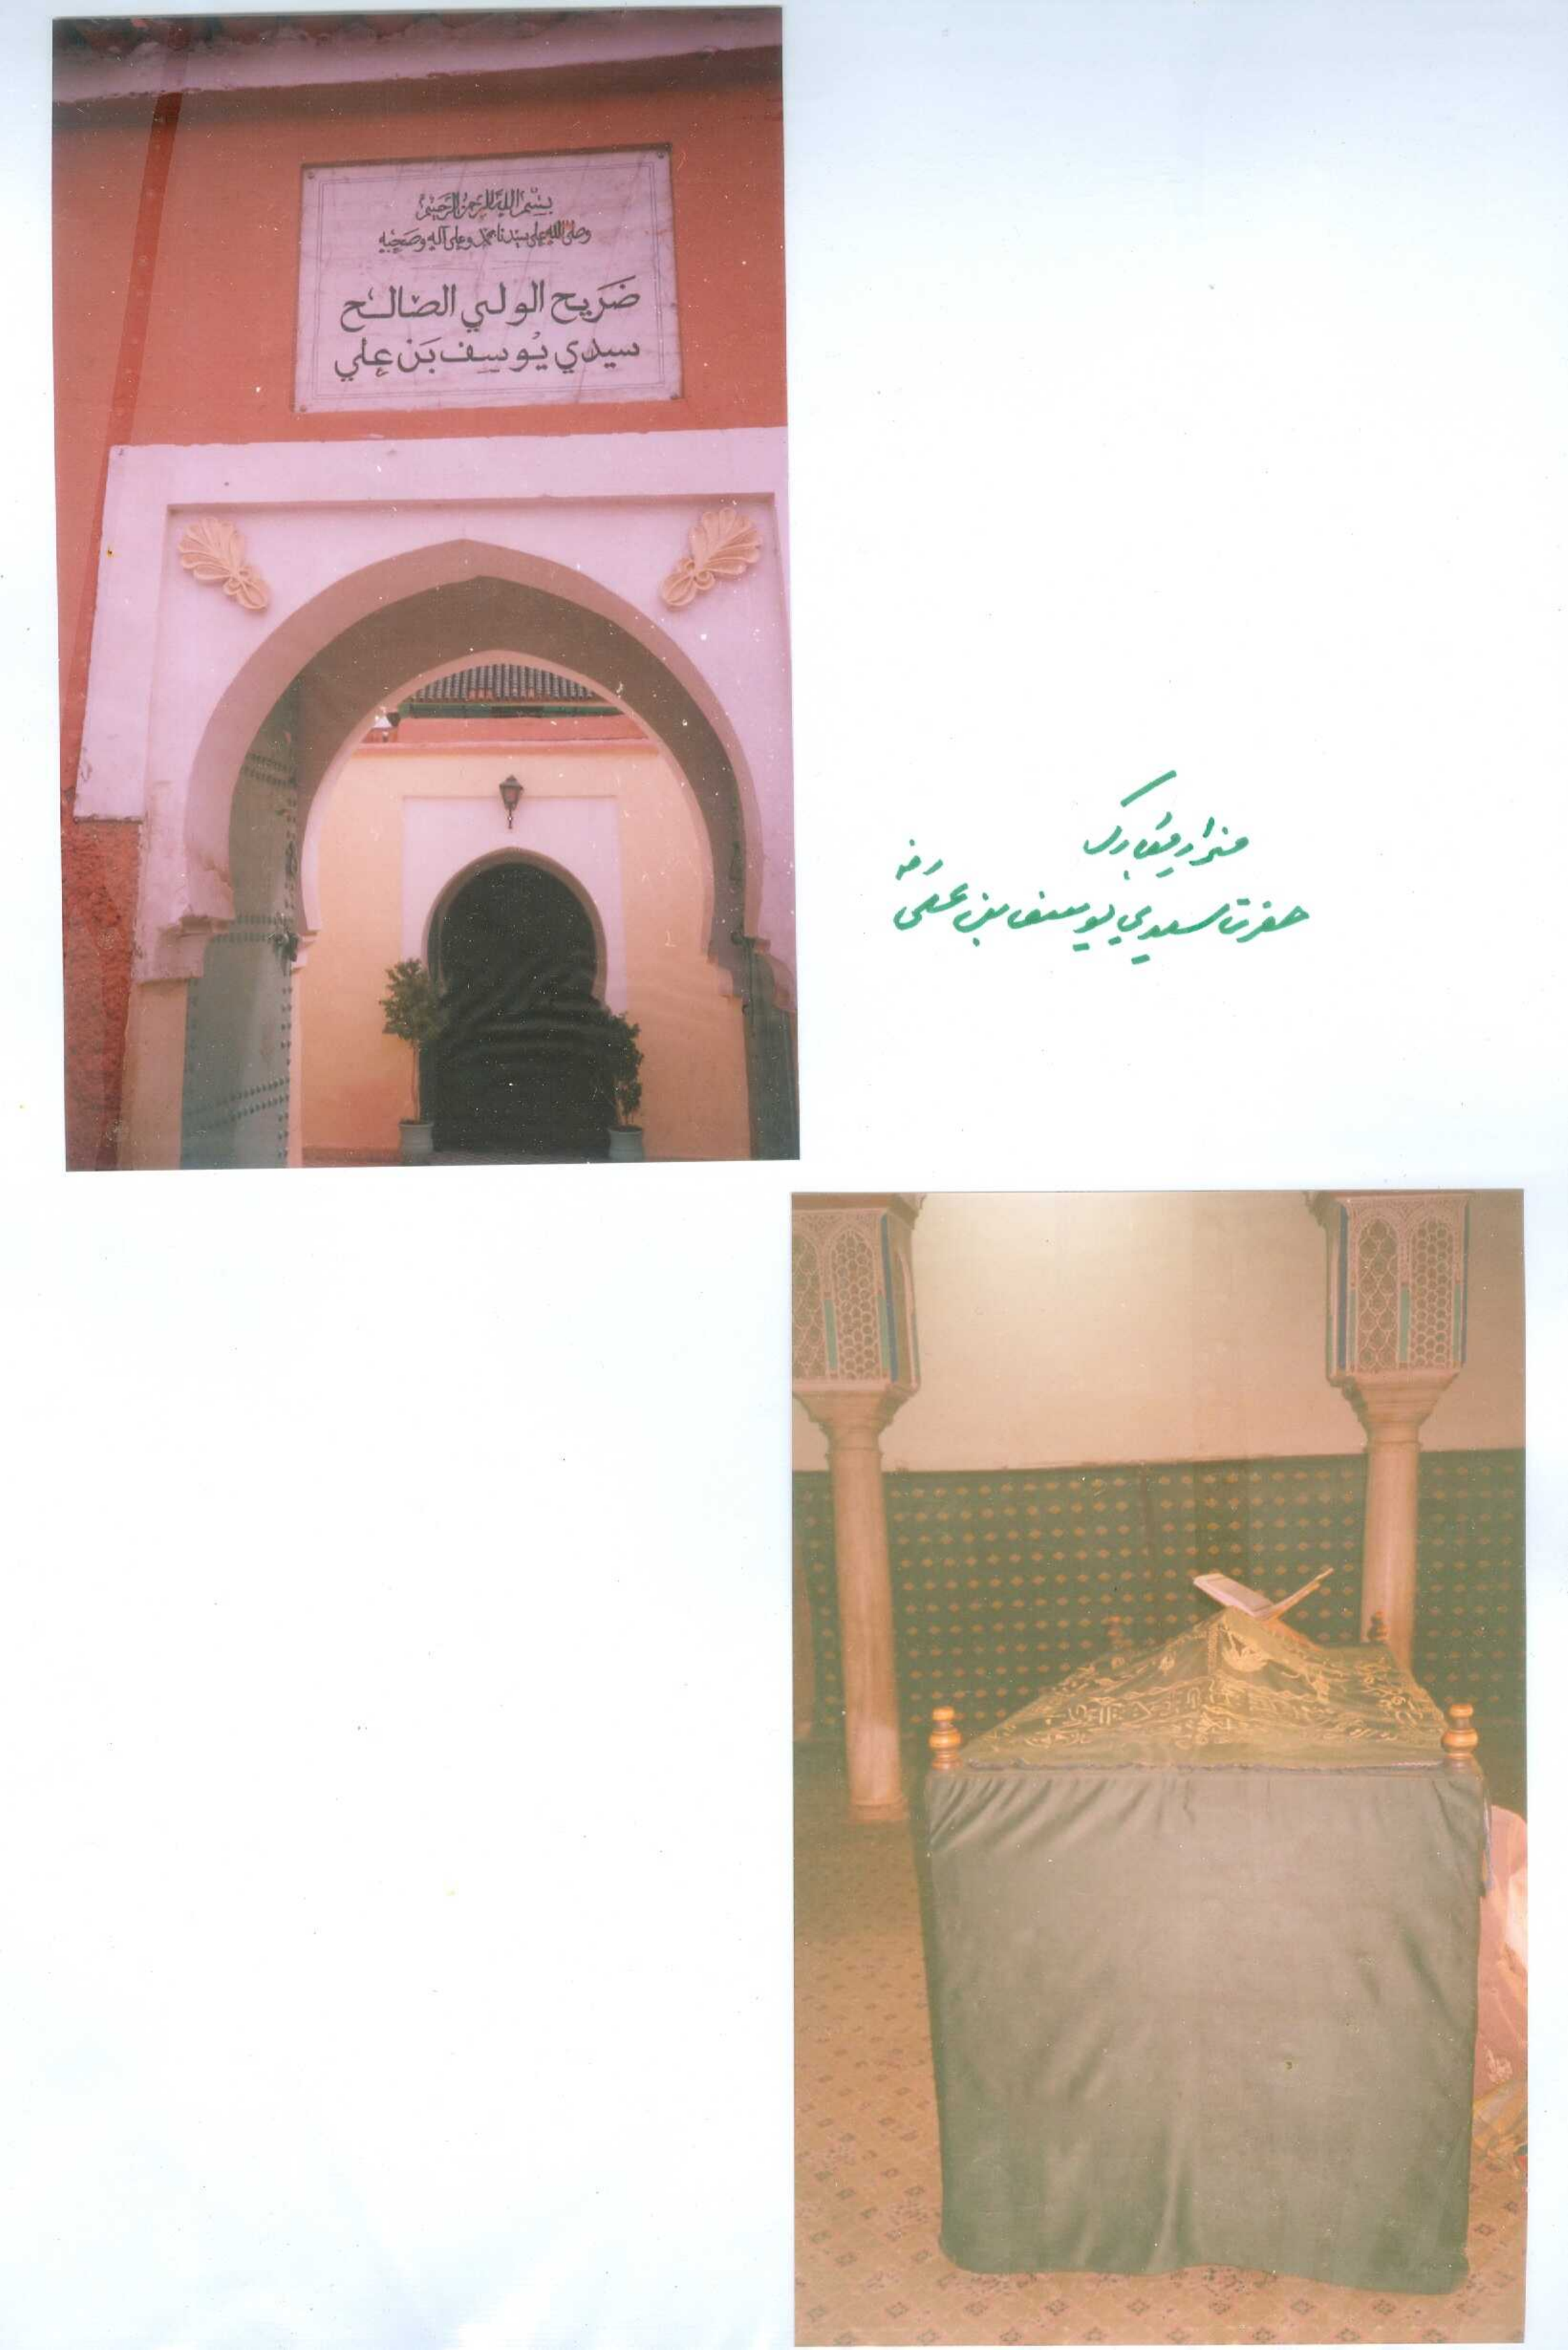 بِسْمِ اللهِ الرَّحْمٰنِ الرَّحِيْمِ
وصلى الله على سيدنا محمد وعلى آله وصحبه
ضَرَيح الولي الصَالح
سيدي يُوسف بَن عِلي
مزار مبارک
حضرت سیدي یوسف بن علی رضہ